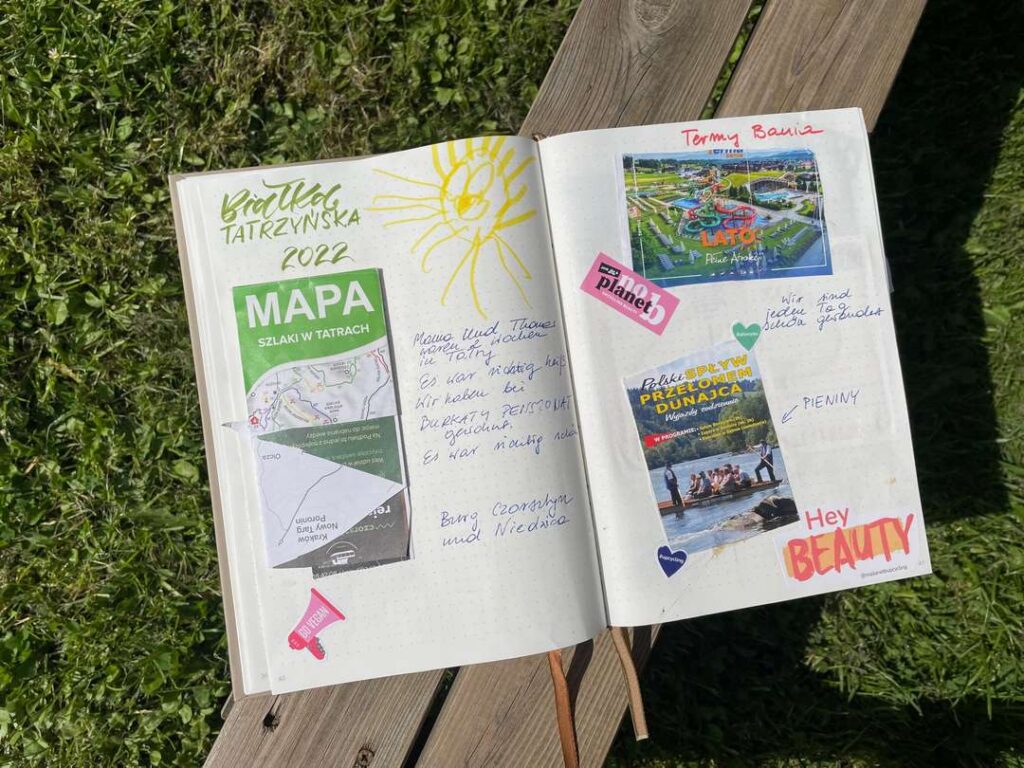 Białka
TATRZYŃSKA
2022
MAPA
SZLAKI W TATRACH
Olcza
Kraków
Nowy Targ
Poronin
GO VEGAN
Mama und Thomas
waren 2 Wochen
in Tatry
Es war richtig heiß
Wir haben bei
BURKATY PENSJONAT
gewohnt.
Es war richtig schön
Burg Czorsztyn
und Niedzica
Termy Bania
LATO
Pełne Atrakcji
planet b
Wir sind
jeden Tag
gewandert
Polski SPŁYW
PRZEŁOMEM
DUNAJCA
Wyjazdy codziennie
W PROGRAMIE:
PIENINY
#upcycling
Hey
BEAUTY